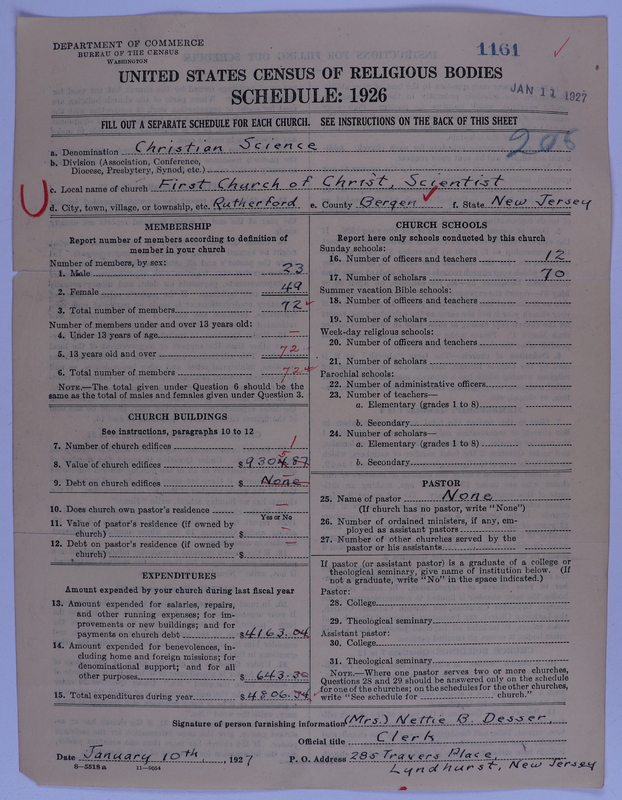 DEPARTMENT OF COMMERCE
BUREAU OF THE CENSUS
WASHINGTON
1161
UNITED STATES CENSUS OF RELIGIOUS BODIES
SCHEDULE: 1926
JAN 11 1927
FILL OUT A SEPARATE SCHEDULE FOR EACH CHURCH. SEE INSTRUCTIONS ON THE BACK OF THIS SHEET
a. Denomination Christian Science
b. Division (Association, Conference,
Diocese, Presbytery, Synod, etc.)
c. Local name of church First Church of Christ, Scientist
d. City, town, village, or township, etc. Rutherford e. County Bergen f. State New Jersey
MEMBERSHIP
Report number of members according to definition of
member in your church
Number of members, by sex:
1. Male 23
2. Female 49
3. Total number of members 72
Number of members under and over 13 years old:
4. Under 13 years of age —
5. 13 years old and over 72
6. Total number of members 72
NOTE.—The total given under Question 6 should be the
same as the total of males and females given under Question 3.
CHURCH BUILDINGS
See instructions, paragraphs 10 to 12
7. Number of church edifices 1
8. Value of church edifices $
9. Debt on church edifices $ None
10. Does church own pastor's residence —
Yes or No
11. Value of pastor's residence (if owned by
church) $ —
12. Debt on pastor's residence (if owned by
church) $ —
EXPENDITURES
Amount expended by your church during last fiscal year
13. Amount expended for salaries, repairs,
and other running expenses; for im-
provements or new buildings; and for
payments on church debt $4163.04
14. Amount expended for benevolences, in-
cluding home and foreign missions; for
denominational support; and for all
other purposes $ 643.30
15. Total expenditures during year $4806.34
CHURCH SCHOOLS
Report here only schools conducted by this church
Sunday schools:
16. Number of officers and teachers 12
17. Number of scholars 70
Summer vacation Bible schools:
18. Number of officers and teachers
19. Number of scholars
Week-day religious schools:
20. Number of officers and teachers
21. Number of scholars
Parochial schools:
22. Number of administrative officers
23. Number of teachers—
a. Elementary (grades 1 to 8)
b. Secondary
24. Number of scholars—
a. Elementary (grades 1 to 8)
b. Secondary
PASTOR
25. Name of pastor None
(If church has no pastor, write "None")
26. Number of ordained ministers, if any, em-
ployed as assistant pastors
27. Number of other churches served by the
pastor or his assistants
If pastor (or assistant pastor) is a graduate of a college or
theological seminary, give name of institution below. (If
not a graduate, write "No" in the space indicated.)
Pastor:
28. College
29. Theological seminary
Assistant pastor:
30. College
31. Theological seminary
NOTE.—Where one pastor serves two or more churches,
Questions 28 and 29 should be answered only on the schedule
for one of the churches; on the schedules for the other churches,
write "See schedule for church."
Signature of person furnishing information (Mrs.) Nettie B. Desser,
Official title Clerk
Date January 10th, 1927 P. O. Address 285 Travers Place,
Lyndhurst, New Jersey
8—5518a 11—6664